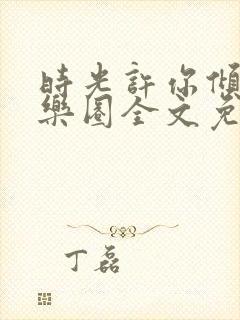 時光許你傾
樂園全文免
丁磊